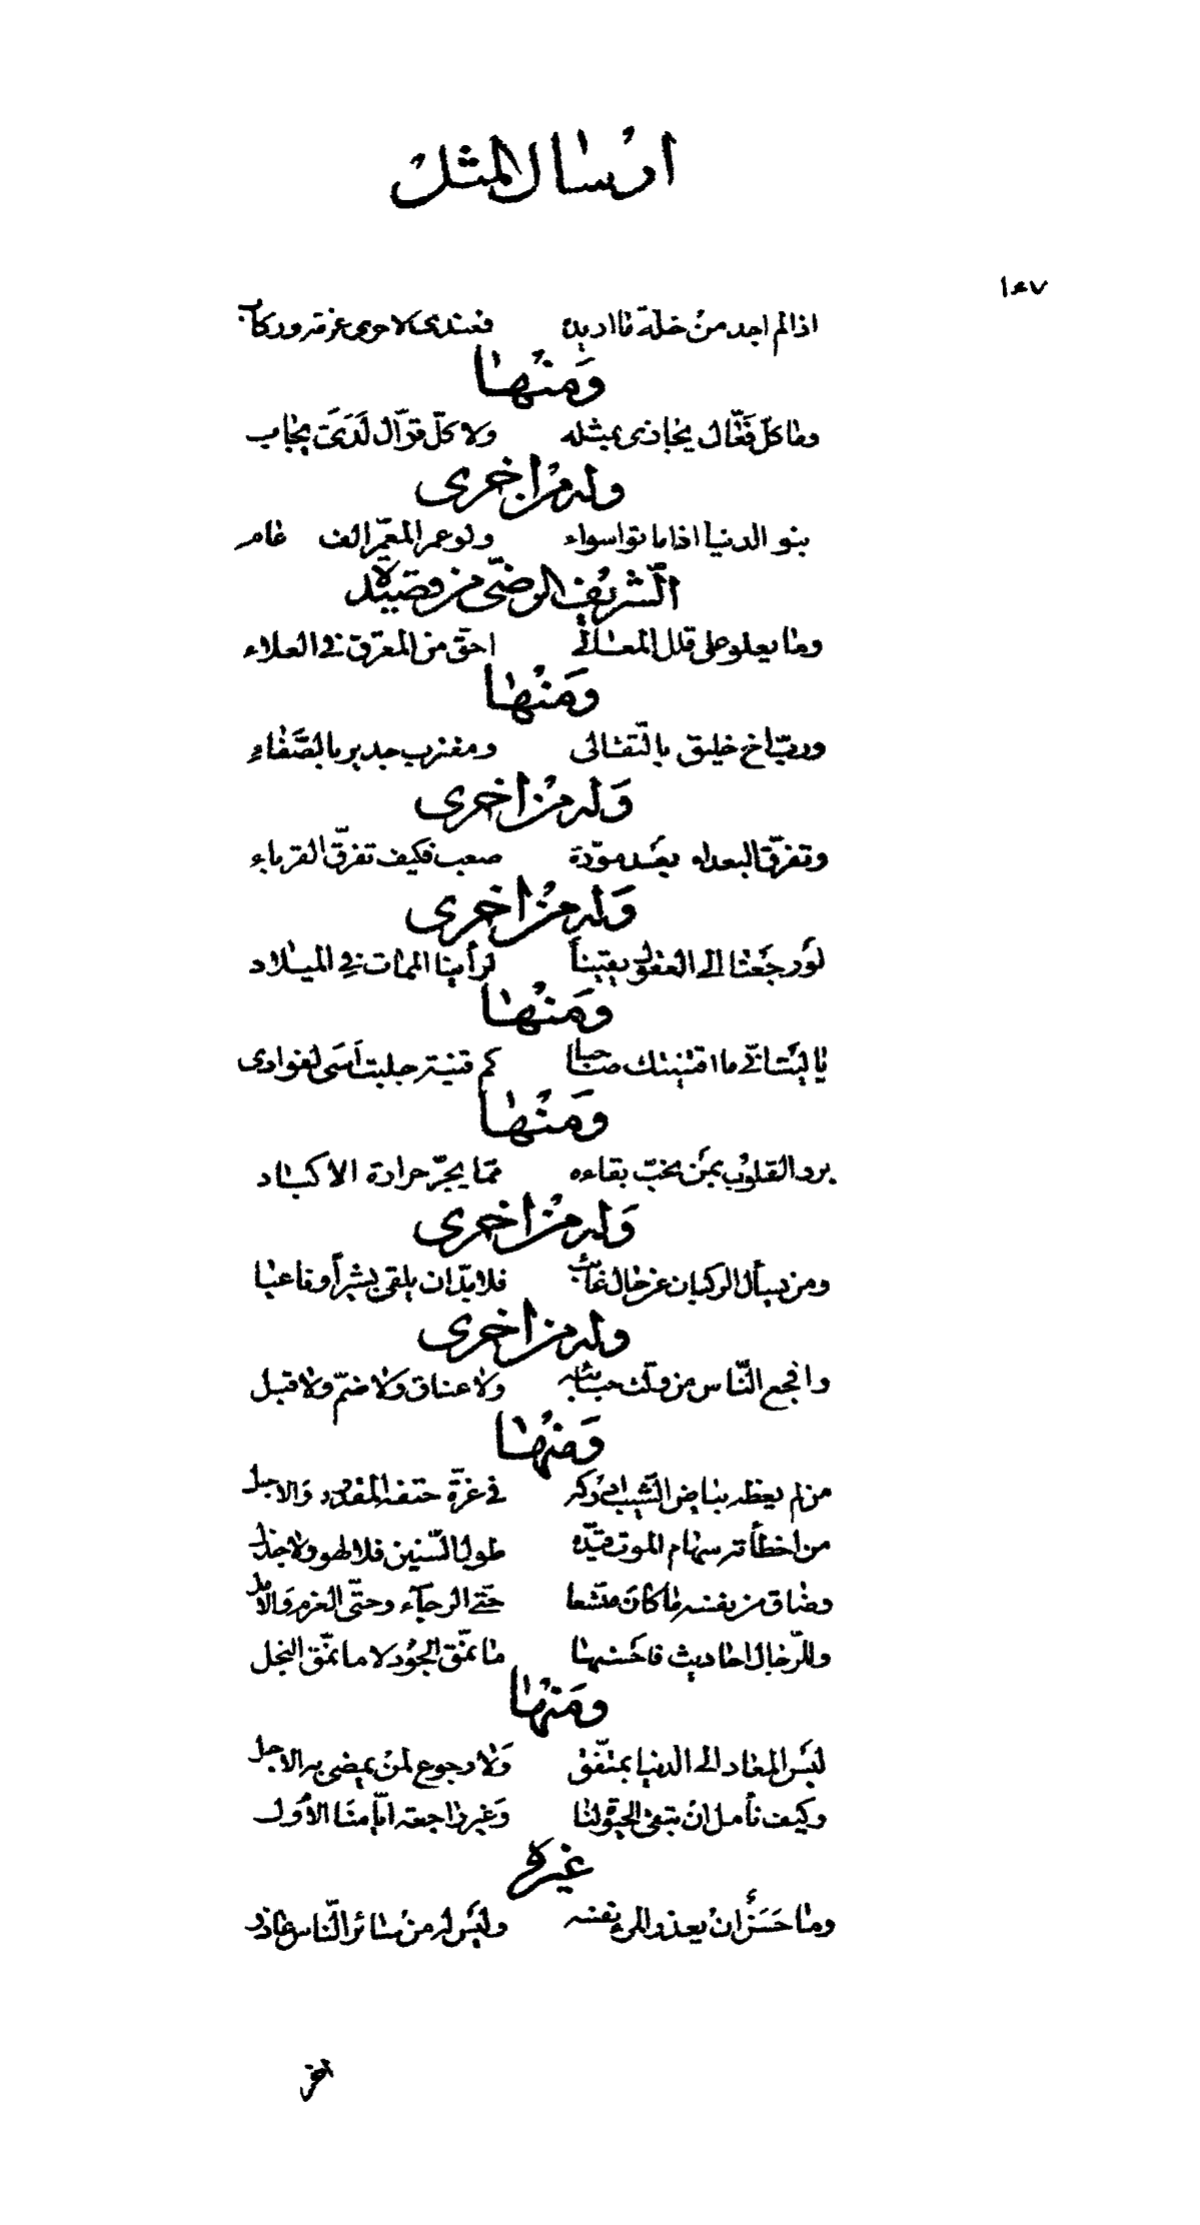 ارسال المثل
١٤٧
اذا لم اجد من خلة ما اريده فعندى لاخرى عزمة وركاب
ومنها
وما كلّ فعّال يجازى بمثله ولا كلّ قوّال لدىّ يجاب
وله من اخرى
بنو الدنيا اذا ماتوا سواء ولو عمر المعمّر الف عام
الشريف الرضىّ من قصيدة
وما يعلو على قلل المعالى احقّ من المعرّق فى العلاء
ومنها
وربّ اخ خليق بالتّقالى ومغترب جدير بالصّفاء
وله من اخرى
وتفرّق البعداء بعد مودّة صعب فكيف تفرّق القرباء
وله من اخرى
لو رجعنا الى العقول يقيناً لرأينا الممات فى الميلاد
ومنها
يا ليتانّى ما اقتنيتك صاحبا كم قنية جلبت اسى لفوادى
ومنها
برد القلوب بمن تحبّ بقاءه ممّا يجرّ حرارة الاكباد
وله من اخرى
ومن يسأل الركبان عن حال غائب فلا بدّ ان يلقى بشيراً وناعيا
وله من اخرى
وافجع النّاس من ولّت حبائبه ولا عناق ولا ضمّ ولا قبل
ومنها
من لم يعظه بياض الشّيب ادركه فى غرّة حتفه المقدور والاجل
من اخطأته سهام الموت قيّده طول السّنين فلا لهو ولا جذل
وضاق من نفسه ما كان متّسعا حتّى الرجآء وحتّى العزم والامل
وللرّجال احاديث فاحسنها ما نمّق الجود لا ما نمّق البخل
ومنها
ليس المعاد الى الدنيا بمتّفق ولا رجوع لمن يمضى به الاجل
وكيف نأمل ان تبقى الحيوة لنا وغير راجعة ايّامنا الأول
غيره
وما حسن ان يعذر المرء نفسه وليس له من سائر النّاس عاذر